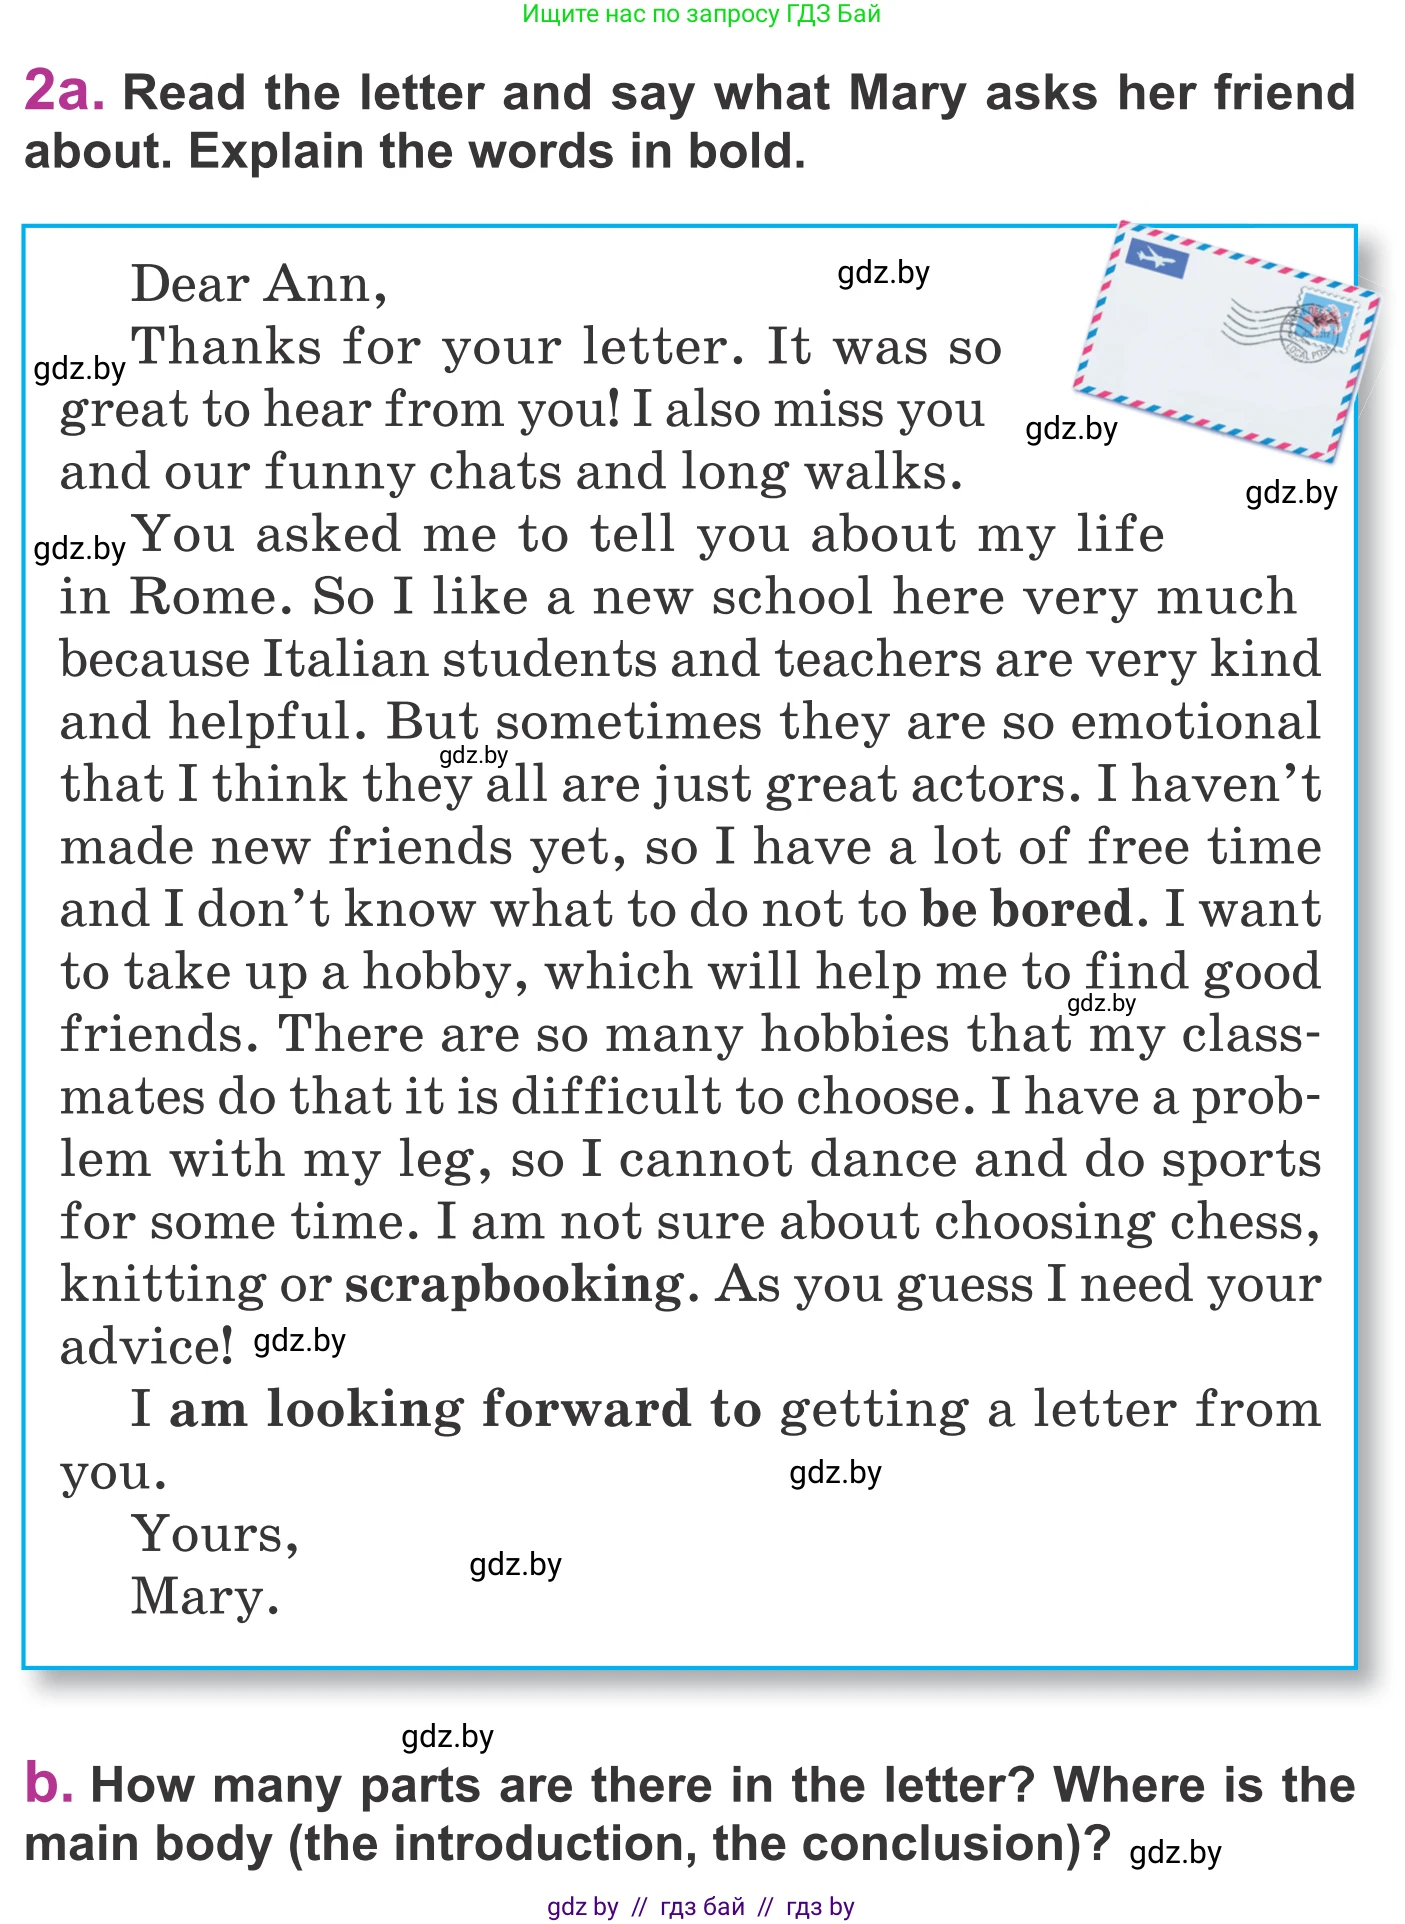 Ищите нас по запросу ГДЗ Бай
2a. Read the letter and say what Mary asks her friend
about. Explain the words in bold.
Dear Ann,
gdz.by
Thanks for your letter. It was so
gdz.by
great to hear from you! I also miss you
gdz.by
and our funny chats and long walks.
gdz.by
You asked me to tell you about my life
gdz.by
in Rome. So I like a new school here very much
because Italian students and teachers are very kind
and helpful. But sometimes they are so emotional
gdz.by
that I think they all are just great actors. I haven't
made new friends yet, so I have a lot of free time
and I don't know what to do not to be bored. I want
to take up a hobby, which will help me to find good
gdz.by
friends. There are so many hobbies that my class-
mates do that it is difficult to choose. I have a prob-
lem with my leg, so I cannot dance and do sports
for some time. I am not sure about choosing chess,
knitting or scrapbooking. As you guess I need your
advice!
gdz.by
I am looking forward to getting a letter from
you.
gdz.by
Yours,
gdz.by
Mary.
gdz.by
b. How many parts are there in the letter? Where is the
main body (the introduction, the conclusion)?
gdz.by
gdz by // гдз бай // гдз by